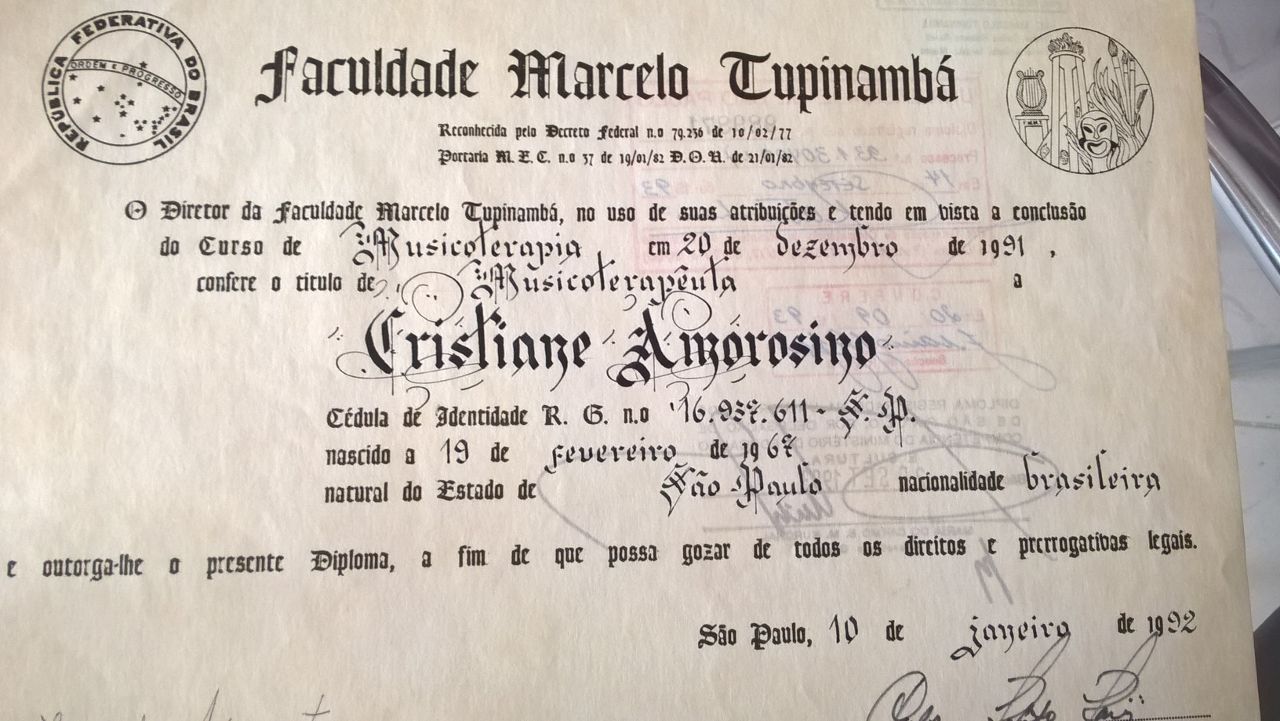 REPÚBLICA FEDERATIVA DO BRASIL
ORDEM E PROGRESSO
Faculdade Marcelo Tupinambá
Reconhecida pelo Decreto Federal n.o 79.236 de 10/02/77
Portaria M. E. C. n.o 37 de 19/01/82 D. O. U. de 21/01/82
O Diretor da Faculdade Marcelo Tupinambá, no uso de suas atribuições e tendo em vista a conclusão
do Curso de Musicoterapia em 20 de dezembro de 1991 ,
confere o titulo de Musicoterapêuta a
Cristiane Amorosino
Cédula de Identidade R. G. n.o 16.937.611 - S. P.
nascido a 19 de fevereiro de 1967
natural do Estado de São Paulo nacionalidade brasileira
e outorga-lhe o presente Diploma, a fim de que possa gozar de todos os direitos e prerrogativas legais.
São Paulo, 10 de janeiro de 1992